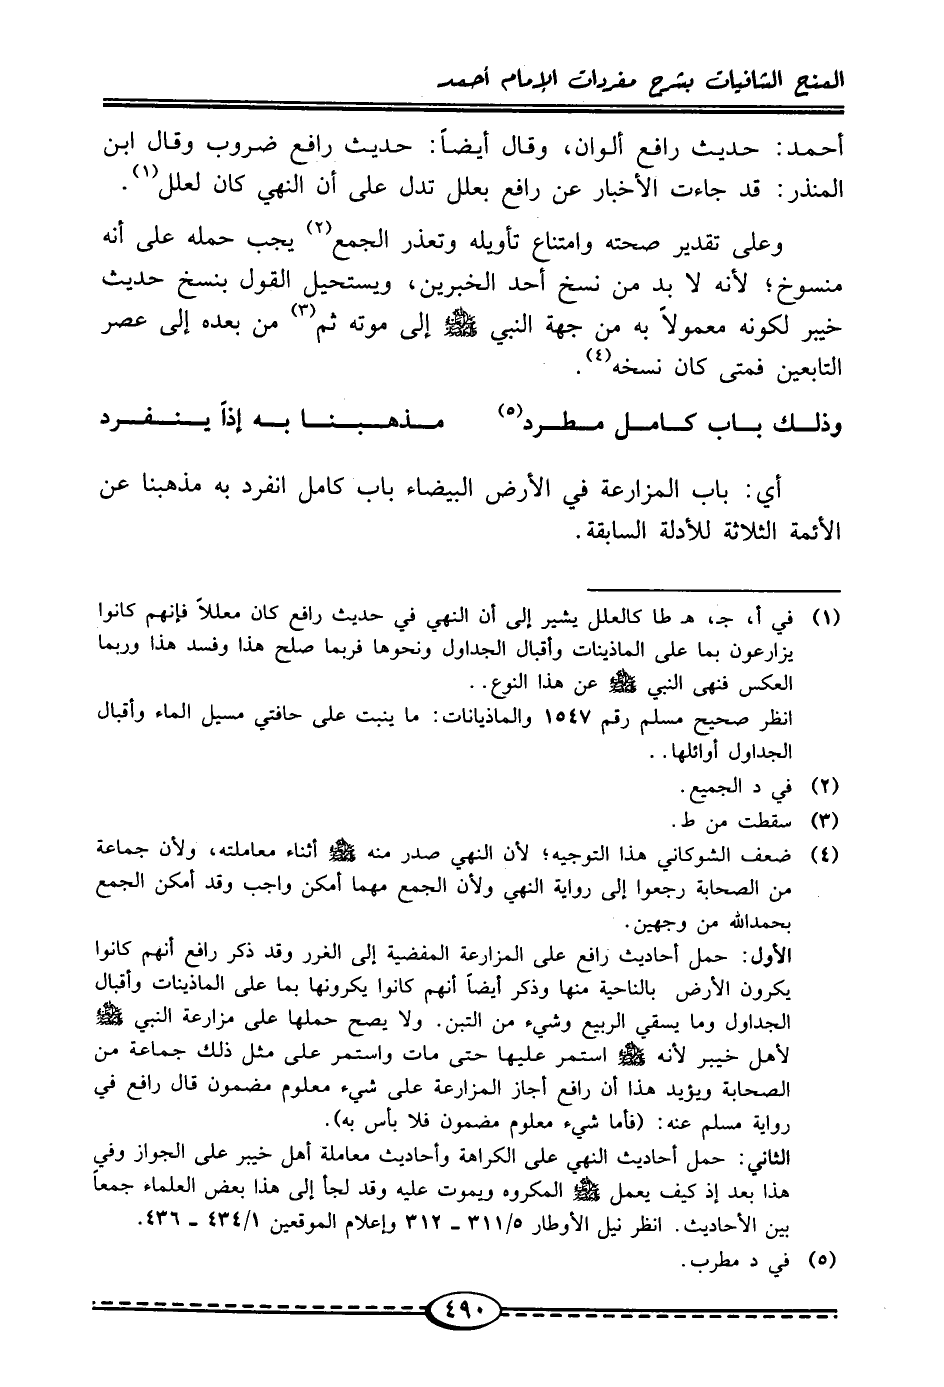 المنح الشافيات بشرح مفردات الإمام أحمد
أحمد: حديث رافع ألوان، وقال أيضاً: حديث رافع ضروب وقال ابن
المنذر: قد جاءت الأخبار عن رافع بعلل تدل على أن النهي كان لعلل(١).
وعلى تقدير صحته وامتناع تأويله وتعذر الجمع(٢) يجب حمله على أنه
منسوخ؛ لأنه لا بد من نسخ أحد الخبرين، ويستحيل القول بنسخ حديث
خيبر لكونه معمولاً به من جهة النبي ﷺ إلى موته ثم(٣) من بعده إلى عصر
التابعين فمتى كان نسخه(٤).
وذلك باب كامل مطرد(٥) مذهبنا به إذاً ينفرد
أي: باب المزارعة في الأرض البيضاء باب كامل انفرد به مذهبنا عن
الأئمة الثلاثة للأدلة السابقة.
(١) في أ، جـ، هـ طا كالعلل يشير إلى أن النهي في حديث رافع كان معللاً فإنهم كانوا
يزارعون بما على الماذينات وأقبال الجداول ونحوها فربما صلح هذا وفسد هذا وربما
العكس فنهى النبي ﷺ عن هذا النوع..
انظر صحيح مسلم رقم ١٥٤٧ والماذيانات: ما ينبت على حافتي مسيل الماء وأقبال
الجداول أوائلها..
(٢) في د الجميع.
(٣) سقطت من ط.
(٤) ضعف الشوكاني هذا التوجيه؛ لأن النهي صدر منه ﷺ أثناء معاملته، ولأن جماعة
من الصحابة رجعوا إلى رواية النهي ولأن الجمع مهما أمكن واجب وقد أمكن الجمع
بحمدالله من وجهين.
الأول: حمل أحاديث رافع على المزارعة المفضية إلى الغرر وقد ذكر رافع أنهم كانوا
يكرون الأرض بالناحية منها وذكر أيضاً أنهم كانوا يكرونها بما على الماذينات وأقبال
الجداول وما يسقي الربيع وشيء من التبن. ولا يصح حملها على مزارعة النبي ﷺ
لأهل خيبر لأنه ﷺ استمر عليها حتى مات واستمر على مثل ذلك جماعة من
الصحابة ويؤيد هذا أن رافع أجاز المزارعة على شيء معلوم مضمون قال رافع في
رواية مسلم عنه: (فأما شيء معلوم مضمون فلا بأس به).
الثاني: حمل أحاديث النهي على الكراهة وأحاديث معاملة أهل خيبر على الجواز وفي
هذا بعد إذ كيف يعمل ﷺ المكروه ويموت عليه وقد لجأ إلى هذا بعض العلماء جمعاً
بين الأحاديث. انظر نيل الأوطار ٣١١/٥ - ٣١٢ وإعلام الموقعين ٤٣٤/١ - ٤٣٦.
(٥) في د مطرب.
٤٩٠